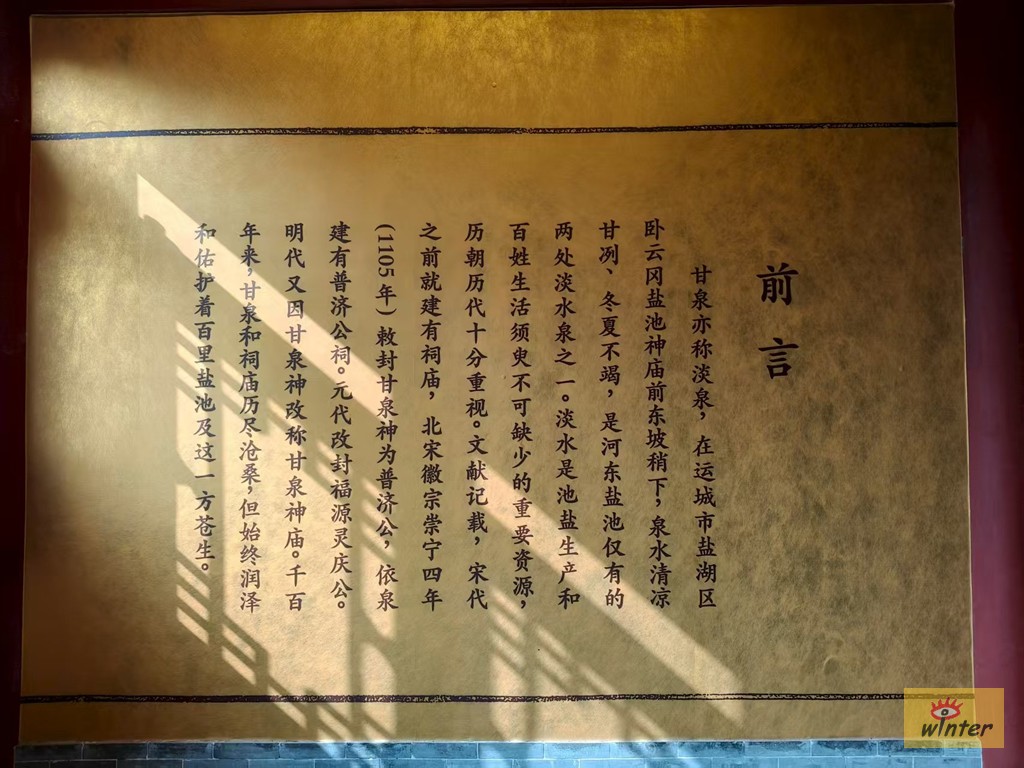 前言
甘泉亦称淡泉，在运城市盐湖区
卧云冈盐池神庙前东坡稍下，泉水清凉
甘冽、冬夏不竭，是河东盐池仅有的
两处淡水泉之一。淡水是池盐生产和
百姓生活须臾不可缺少的重要资源，
历朝历代十分重视。文献记载，宋代
之前就建有祠庙，北宋徽宗崇宁四年
(1105年)敕封甘泉神为普济公，依泉
建有普济公祠。元代改封福源灵庆公。
明代又因甘泉神改称甘泉神庙。千百
年来，甘泉和祠庙历尽沧桑，但始终润泽
和佑护着百里盐池及这一方苍生。
winter